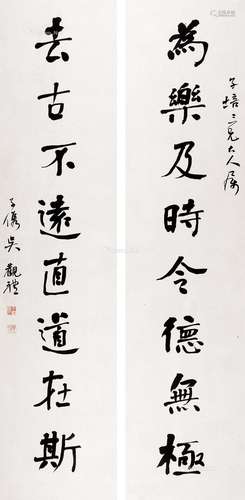 子培三兄大人屬
為樂及時令德無極
去古不遠直道在斯
子儁吳觀禮